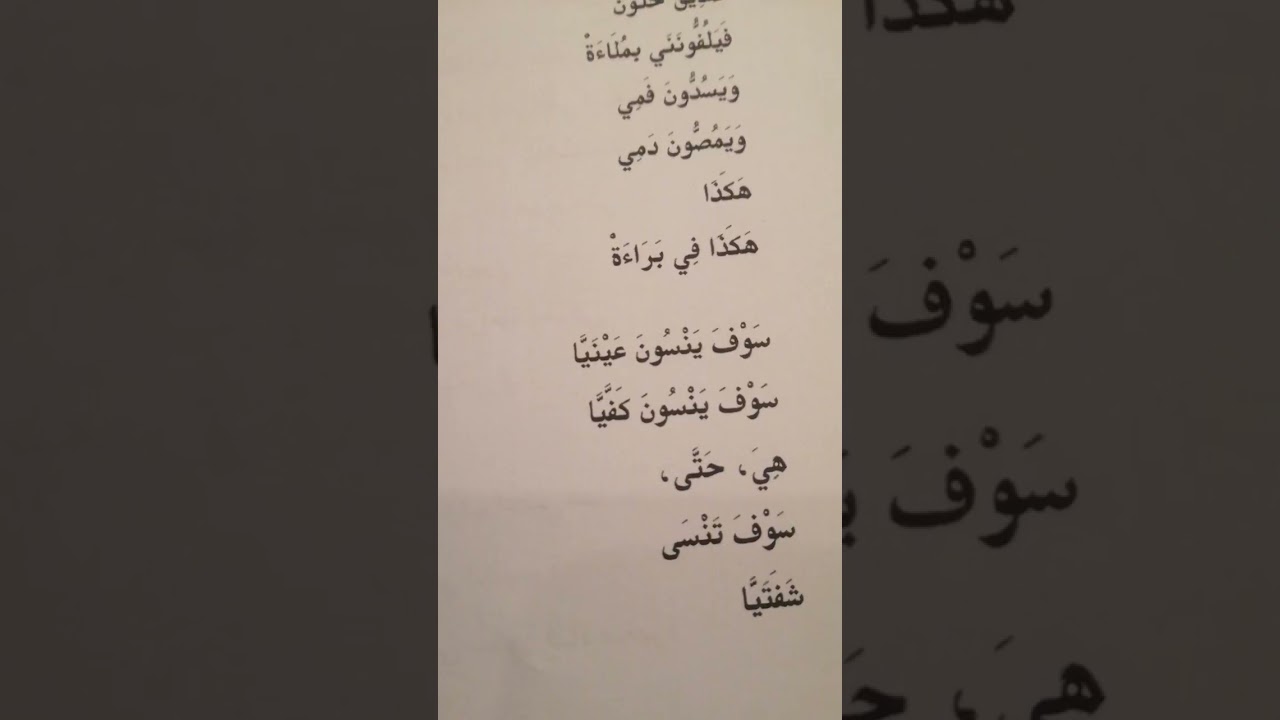 فَيَلُفُّونَنَي بِمُلَاءَةْ
وَيَسُدُّونَ فَمِي
وَيَمُصُّونَ دَمِي
هَكَذَا
هَكَذَا فِي بَرَاءَةْ
سَوْفَ يَنْسُونَ عَيْنَيَّا
سَوْفَ يَنْسُونَ كَفَّيَّا
هِيَ، حَتَّى،
سَوْفَ تَنْسَى
شَفَتَيَّا